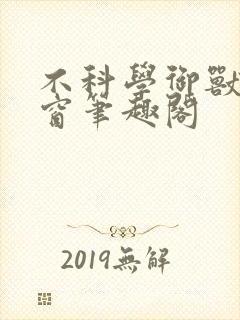 不科學御獸
窗筆趣閣
2019無解